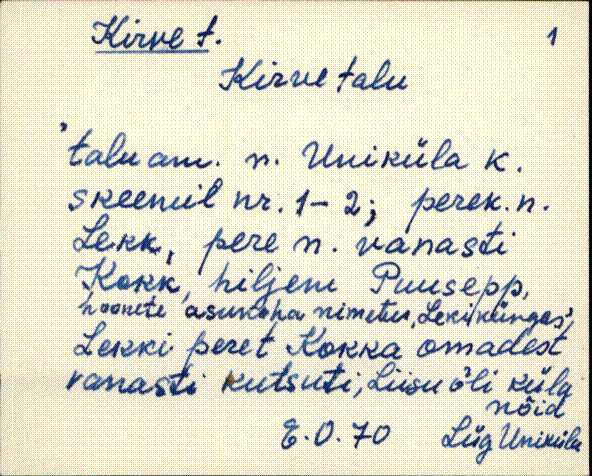 Kirve t. 1
Kirve talu
"talu am. n. Uniküla k.
skeemil nr. 1-2; perek. n.
Lekk, pere n. vanasti
Kokk, hiljem Puusepp,
hoonete asukoha nimetus, Leki küngas",
Lekki peret Kokka omadest
vanasti kutsuti, Liisu õli küla
nõid
E.O. 70 Lüg Uniküla